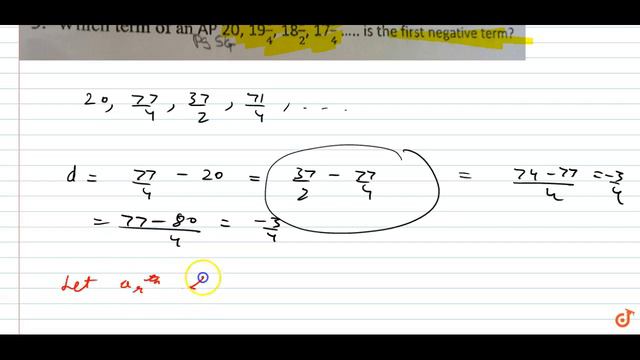 Which term of an AP 20, 19 1/4, 18 1/2, 17 3/4 ..... is the first negative term?
Pg 56
20, 77/4, 37/2, 71/4, ....
d = 77/4 - 20 = 37/2 - 77/4 = 74-77/4 = -3/4
= 77-80/4 = -3/4
Let a_r th